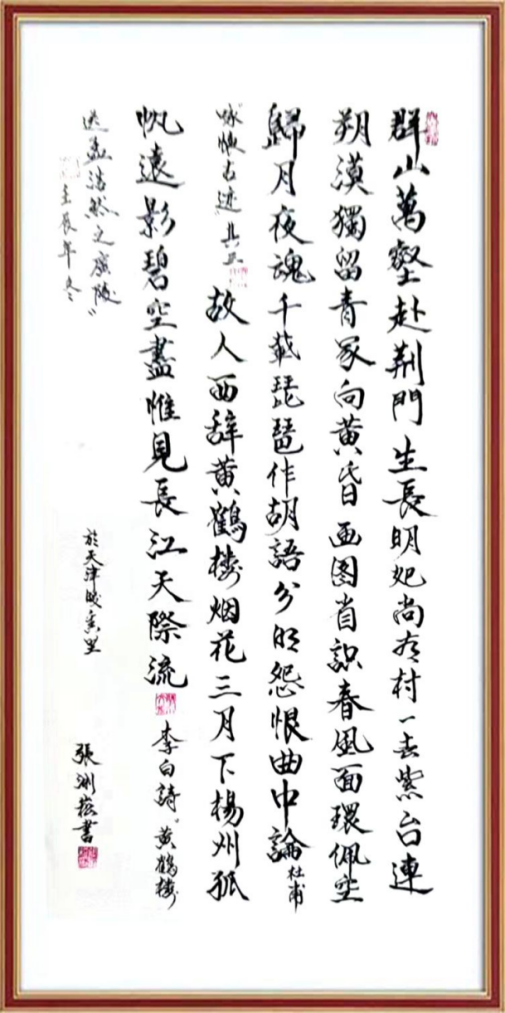 群山萬壑赴荆門生長明妃尚有村一去紫台連
朔漠獨留青冢向黄昏画图省識春風面環佩空
歸月夜魂千載琵琶作胡語分明怨恨曲中論 杜甫
"咏懷古迹"其三 故人西辞黄鶴楼烟花三月下楊州孤
帆遠影碧空盡惟見長江天際流 李白詩"黄鶴楼
送孟浩然之廣陵"
壬辰年冬 於天津
張 書